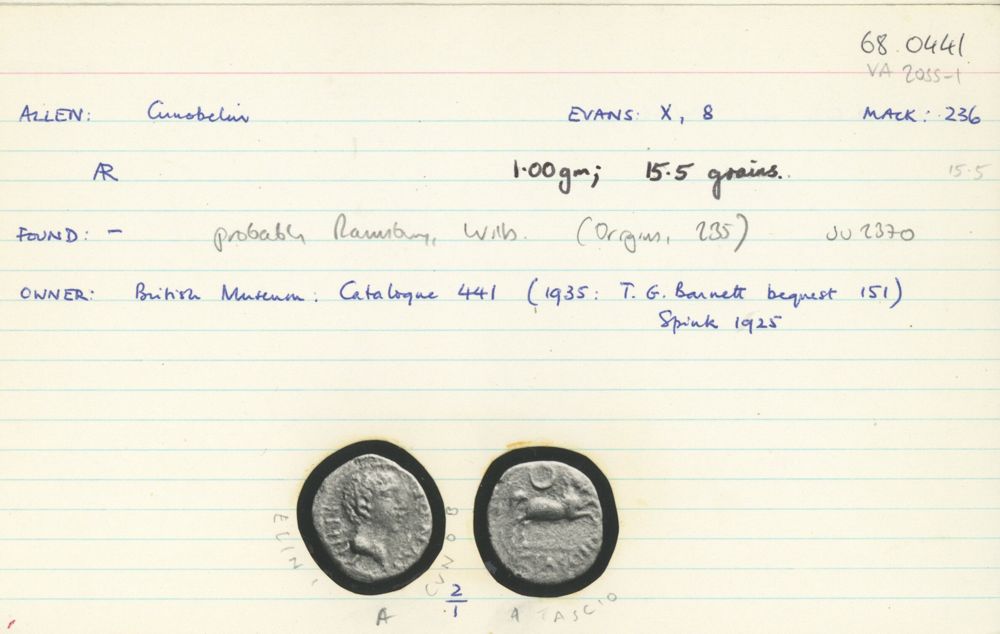 68.0441
VA 2055-1
ALLEN: Cunobelin EVANS: X, 8 MACK: 236
AR 1.00gm; 15.5 grains. 15.5
FOUND: - probably Ramsbury, Wilts. (Origins, 235) SU 2370
OWNER: British Museum: Catalogue 441 (1935: T. G. Barnett bequest 151)
Spink 1925
ELINI CUNOB
2/1
A A TASCIO